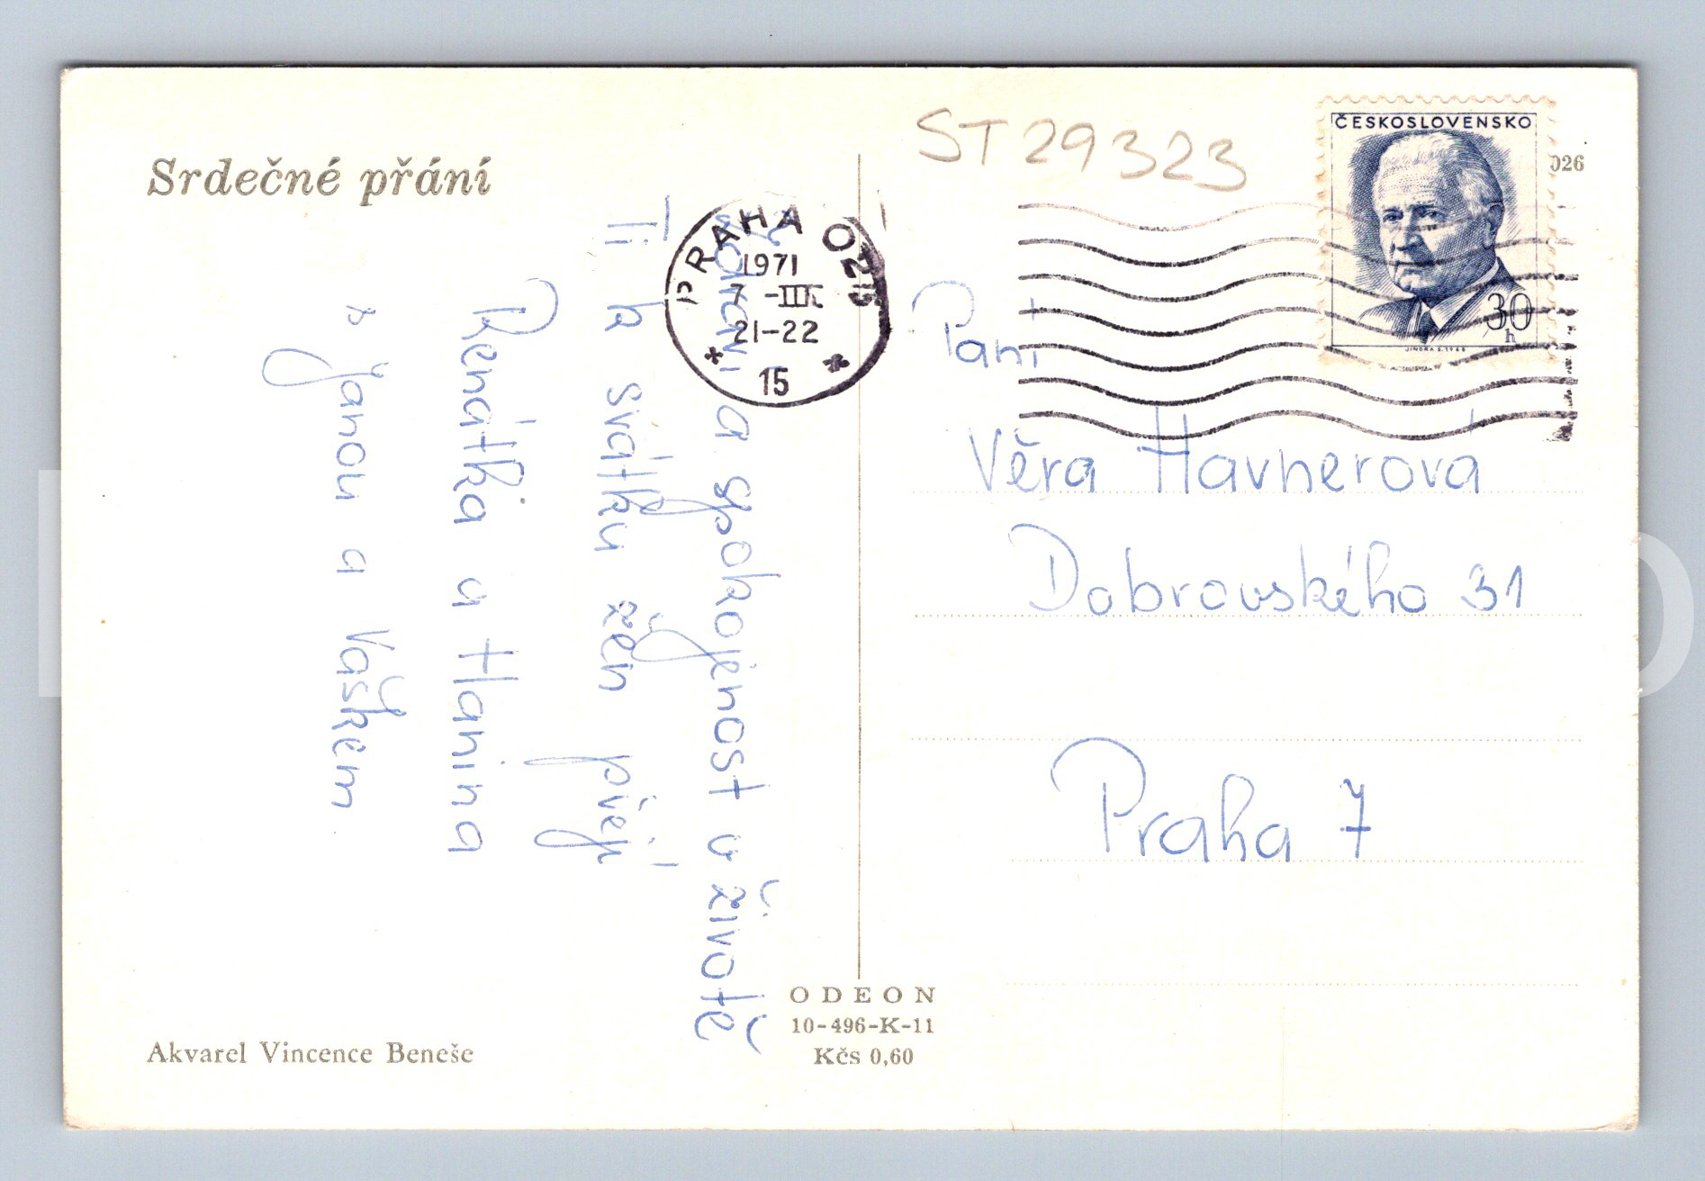 Srdečné přání
ST 29323
ČESKOSLOVENSKO
30
h
JINDRA S. 1968
026
PRAHA 025
1971
7 -III
21-22
15
Zdraví a spokojenost v životě
Ti k svátku žen přejí
Renátka a Hanina
s Janou a Vaškem
Paní
Věra Havnerová
Dobrovského 31
Praha 7
ODEON
10-496-K-11
Kčs 0,60
Akvarel Vincence Beneše